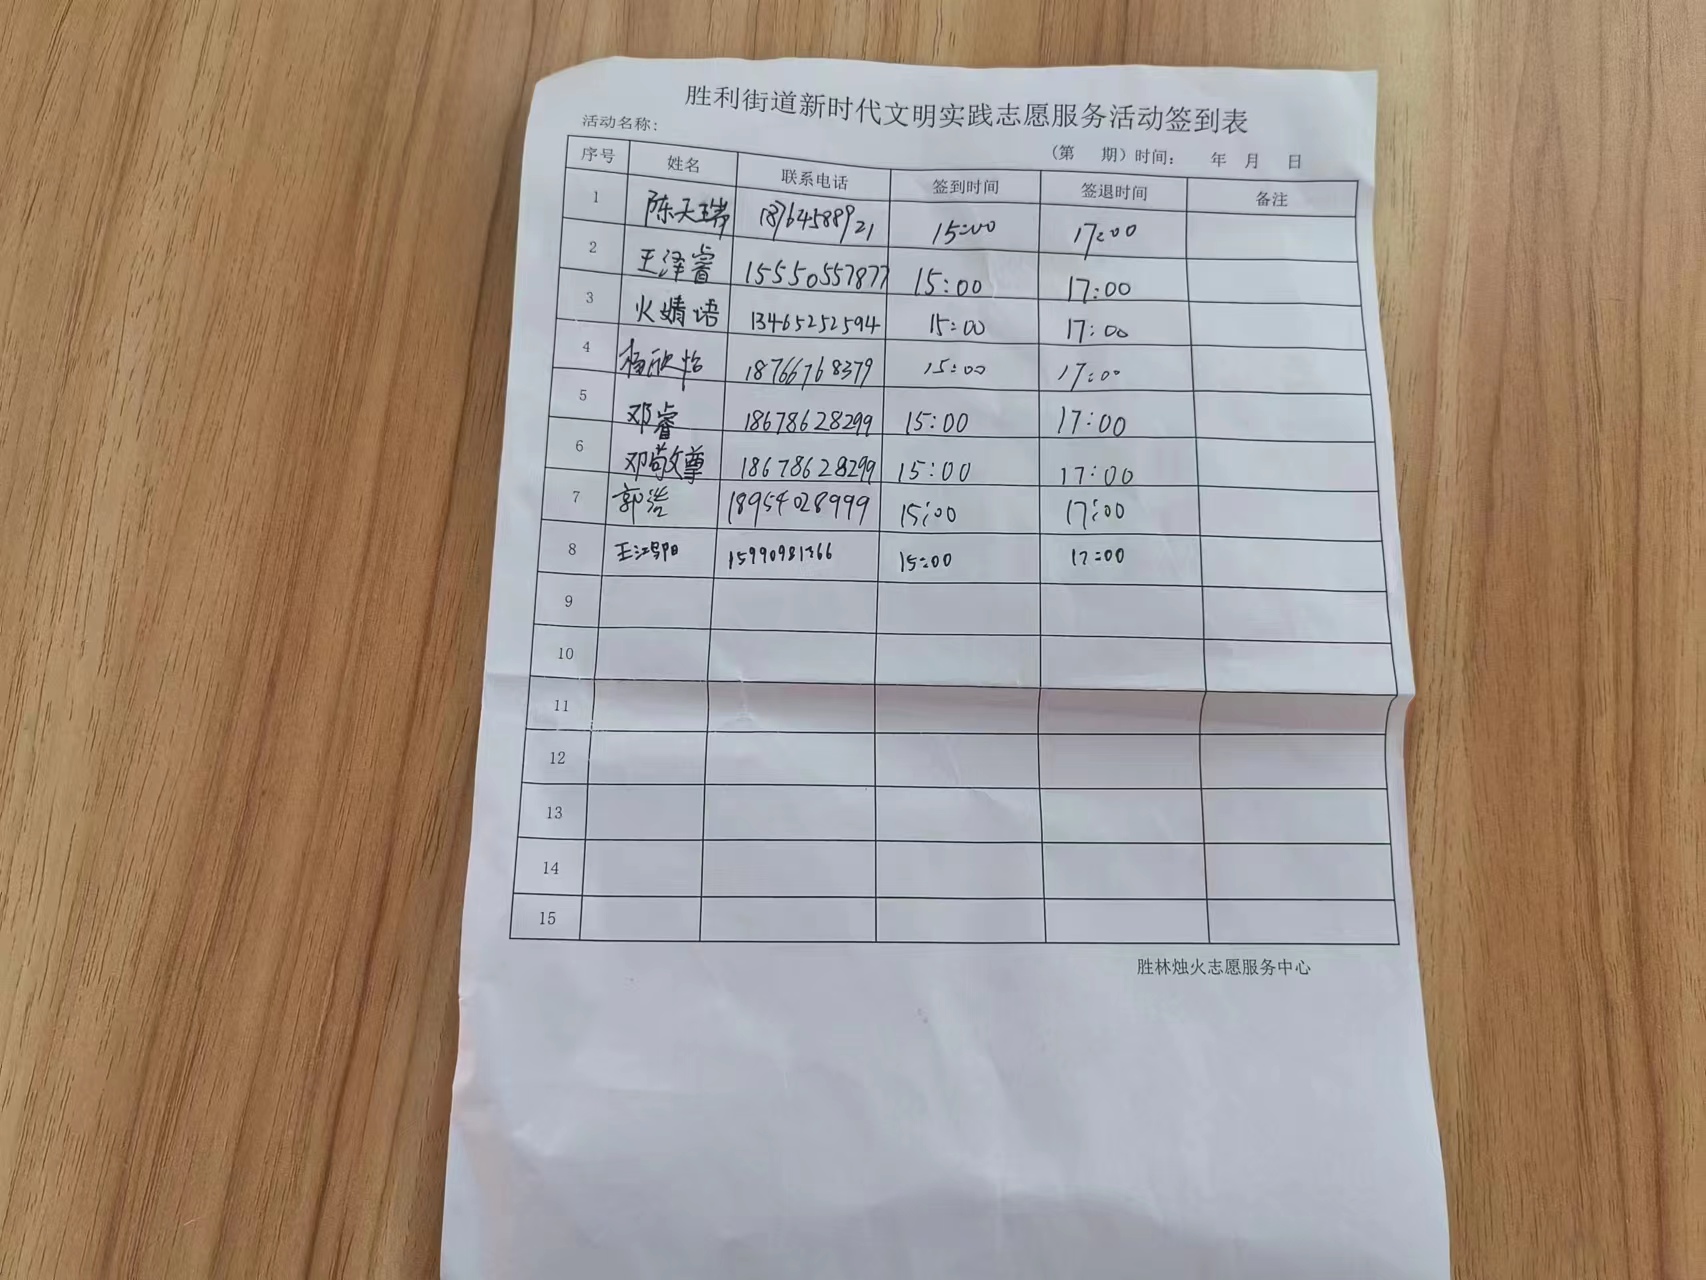 胜利街道新时代文明实践志愿服务活动签到表
活动名称：
（第 期）时间： 年 月 日
序号 姓名 联系电话 签到时间 签退时间 备注
1 陈天瑞 18764588921 15:00 17:00
2 王泽睿 15550557877 15:00 17:00
3 火婧语 13465252594 15:00 17:00
4 杨欣怡 18766768379 15:00 17:00
5 邓睿 18678628299 15:00 17:00
6 邓敬尊 18678628299 15:00 17:00
7 郭浩 18954028999 15:00 17:00
8 15990981366 15:00 17:00
9
10
11
12
13
14
15
胜林烛火志愿服务中心